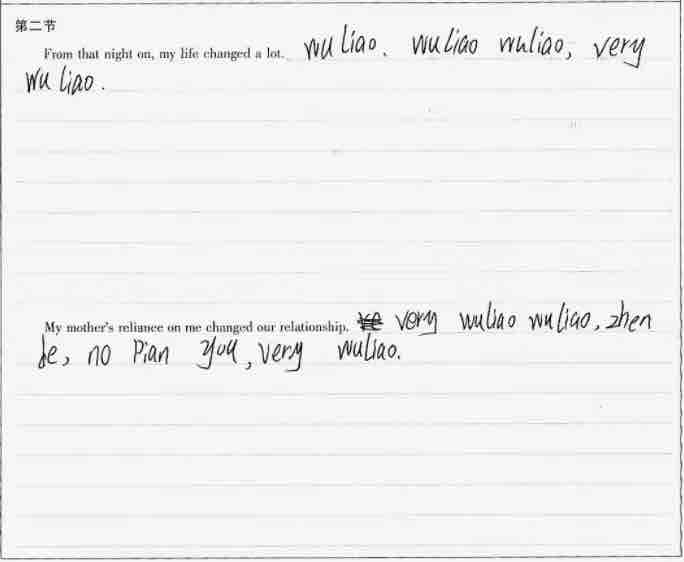 第二节
From that night on, my life changed a lot. wuliao. wuliao wuliao, very
wuliao.
My mother's reliance on me changed our relationship. very wuliao wuliao, zhen
de, no Pian you, very wuliao.